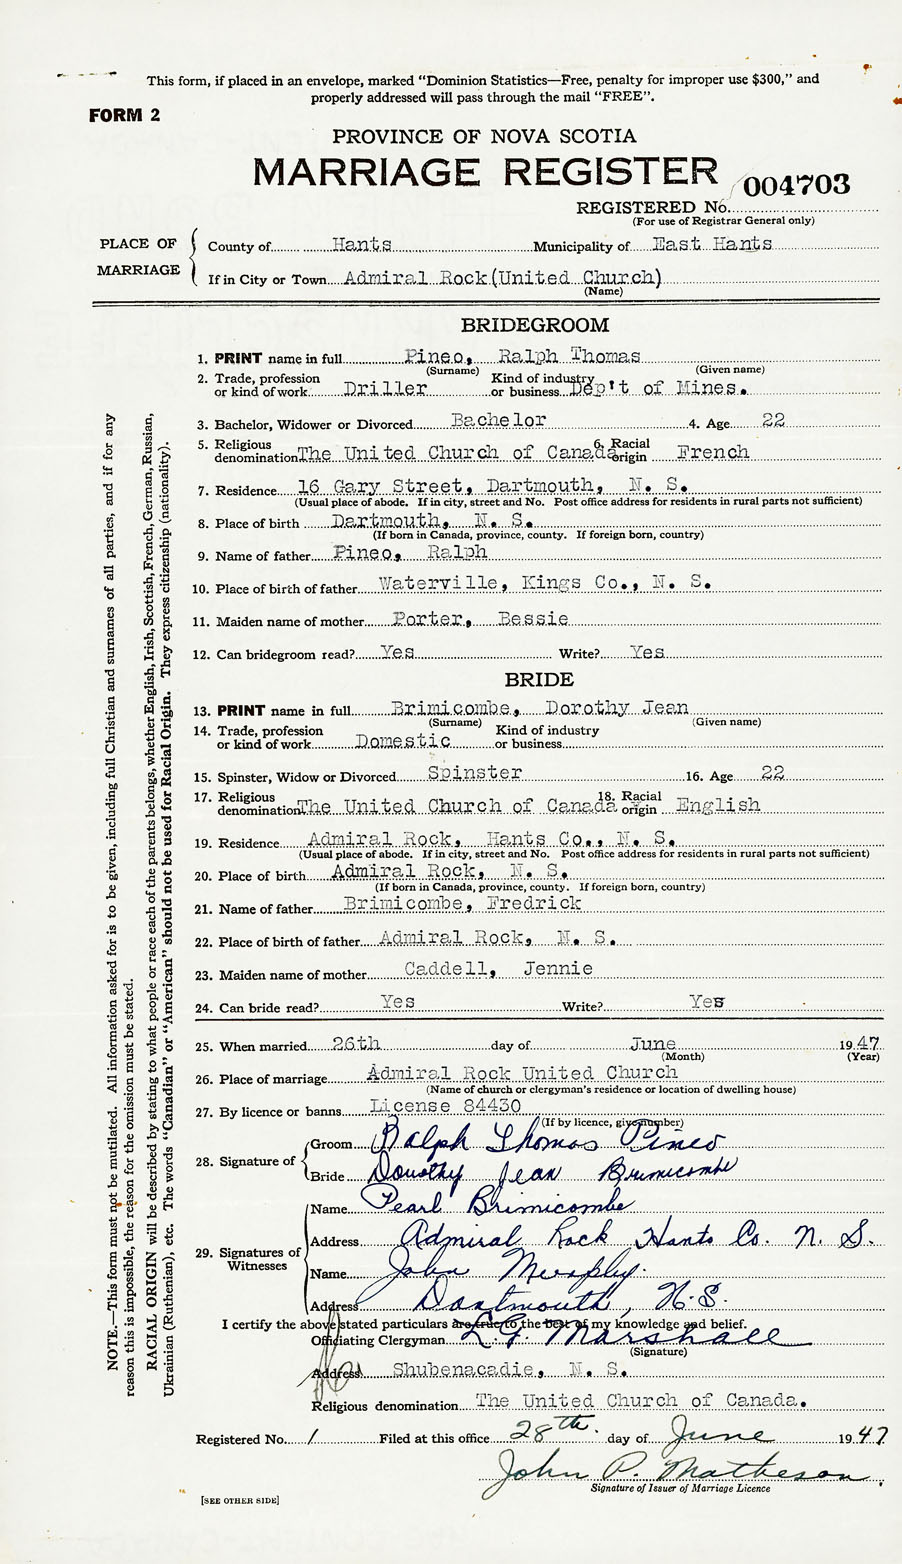 This form, if placed in an envelope, marked “Dominion Statistics—Free, penalty for improper use $300,” and
properly addressed will pass through the mail “FREE”.
FORM 2
PROVINCE OF NOVA SCOTIA
MARRIAGE REGISTER
004703
REGISTERED No.
(For use of Registrar General only)
PLACE OF MARRIAGE
County of Hants Municipality of East Hants
If in City or Town Admiral Rock(United Church)
(Name)
BRIDEGROOM
1. PRINT name in full Pineo, Ralph Thomas
(Surname) (Given name)
2. Trade, profession or kind of work Driller Kind of industry or business Dep't of Mines.
3. Bachelor, Widower or Divorced Bachelor 4. Age 22
5. Religious denomination The United Church of Canada 6. Racial origin French
7. Residence 16 Gary Street, Dartmouth, N. S.
(Usual place of abode. If in city, street and No. Post office address for residents in rural parts not sufficient)
8. Place of birth Dartmouth, N. S.
(If born in Canada, province, county. If foreign born, country)
9. Name of father Pineo, Ralph
10. Place of birth of father Waterville, Kings Co., N. S.
11. Maiden name of mother Porter, Bessie
12. Can bridegroom read? Yes Write? Yes
BRIDE
13. PRINT name in full Brimicombe, Dorothy Jean
(Surname) (Given name)
14. Trade, profession or kind of work Domestic Kind of industry or business
15. Spinster, Widow or Divorced Spinster 16. Age 22
17. Religious denomination The United Church of Canada 18. Racial origin English
19. Residence Admiral Rock, Hants Co., N. S.
(Usual place of abode. If in city, street and No. Post office address for residents in rural parts not sufficient)
20. Place of birth Admiral Rock, N. S.
(If born in Canada, province, county. If foreign born, country)
21. Name of father Brimicombe, Fredrick
22. Place of birth of father Admiral Rock, N. S.
23. Maiden name of mother Caddell, Jennie
24. Can bride read? Yes Write? Yes
25. When married 26th day of June 1947
(Month) (Year)
26. Place of marriage Admiral Rock United Church
(Name of church or clergyman's residence or location of dwelling house)
27. By licence or banns License 84430
(If by licence, give number)
28. Signature of
Groom Ralph Thomas Pineo
Bride Dorothy Jean Brimicombe
29. Signatures of Witnesses
Name Pearl Brimicombe
Address Admiral Rock Hants Co. N. S.
Name John Murphy.
Address Dartmouth, N.S.
I certify the above stated particulars are true to the best of my knowledge and belief.
Officiating Clergyman L.G. Marshall
(Signature)
Address Shubenacadie, N. S.
Religious denomination The United Church of Canada.
Registered No. 1 Filed at this office 28th. day of June 1947
John P. Matheson
Signature of Issuer of Marriage Licence
[SEE OTHER SIDE]
NOTE.—This form must not be mutilated. All information asked for is to be given, including full Christian and surnames of all parties, and if for any
reason this is impossible, the reason for the omission must be stated.
RACIAL ORIGIN will be described by stating to what people or race each of the parents belongs, whether English, Irish, Scottish, French, German, Russian,
Ukrainian (Ruthenian), etc. The words “Canadian” or “American” should not be used for Racial Origin. They express citizenship (nationality).